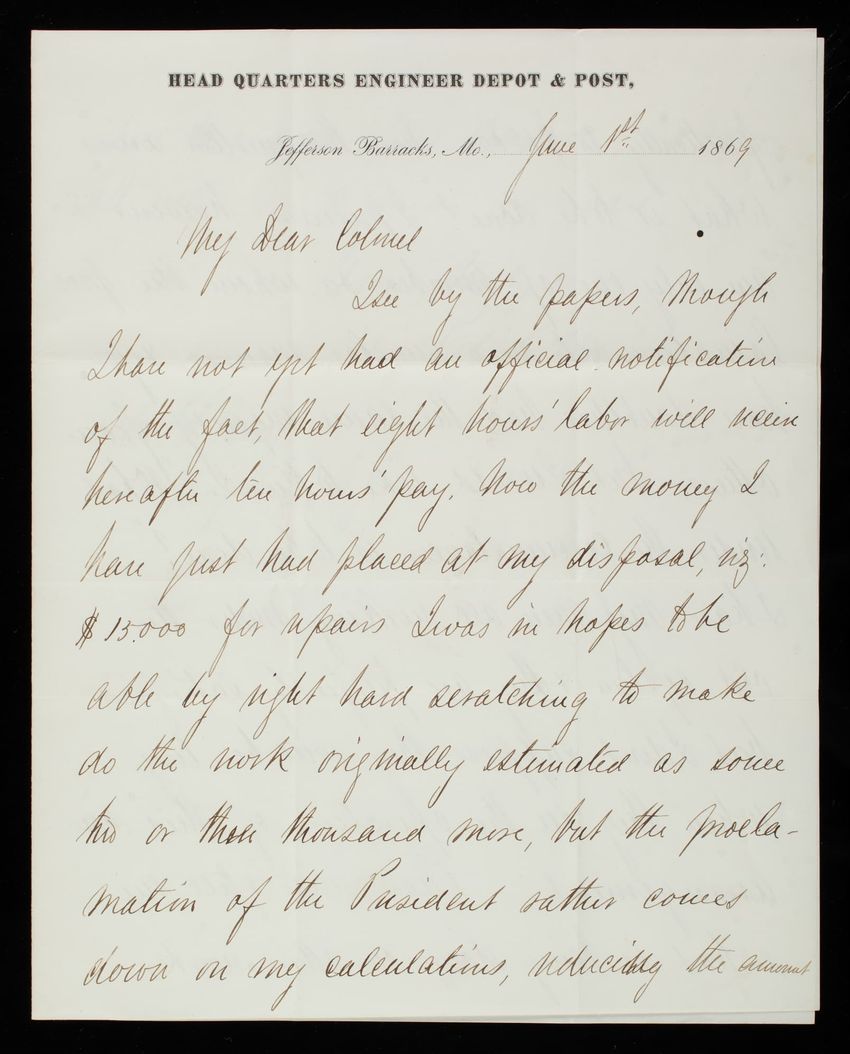 HEAD QUARTERS ENGINEER DEPOT & POST,
Jefferson Barracks, Mo., June 1st 1869
My Dear Colonel
I see by the papers, though
I have not yet had an official notification
of the fact, that eight hours' labor will receive
hereafter ten hours' pay. Now the money I
have just had placed at my disposal, viz:
$15.000 for repairs I was in hopes to be
able by right hard scratching to make
do the work originally estimated as some
two or three thousand more, but the procla-
mation of the President rather comes
down on my calculations, reducing the amount